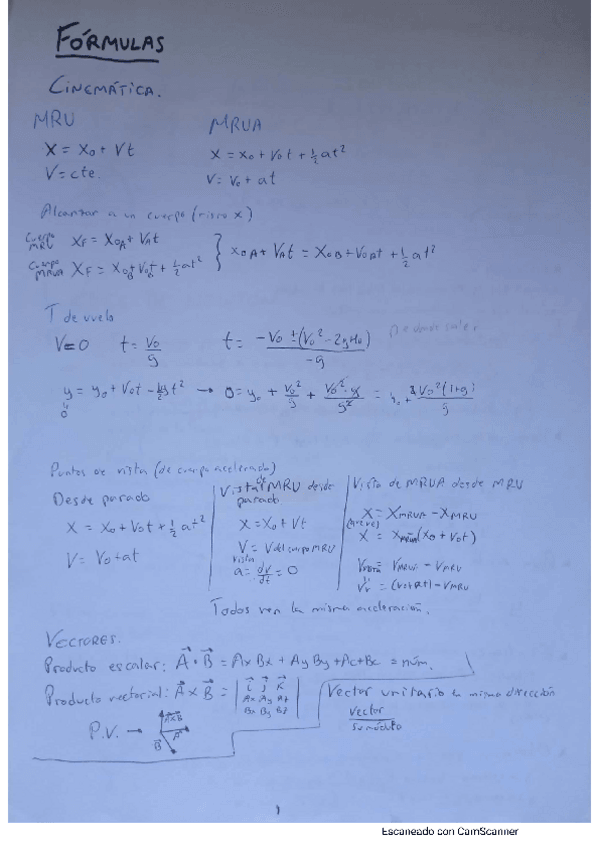 FÓRMULAS
CINEMÁTICA.
MRU
X = X₀ + Vt
V = cte.
MRUA
X = X₀ + V₀t + ½at²
V = V₀ + at
Alcanzar a un cuerpo (mismo x)
Cuerpo MRU X_F = X₀A + V_At
Cuerpo MRUA X_F = X₀B + V₀Bt + ½at²
} X₀A + V_At = X₀B + V₀Bt + ½at²
T de vuelo
V=0 t = V₀/g t = (-V₀ ± (V₀² - 2gH₀))/-g
y = y₀ + V₀t - ½gt² → 0 = y₀ + V₀²/g +
0
Puntos de vista (de cuerpo acelerado)
Desde parado
X = X₀ + V₀t + ½at²
V = V₀ + at
Vista de MRU desde parado
X = X₀ + Vt
V = V del cuerpo MRU
vista
a = dv/dt = 0
Visto de MRUA desde MRU
X = X_MRUA - X_MRU
X = X_MRUA - (X₀ + V₀t)
= V_MRUA - V_MRU
= (V₀ + at) - V_MRU
Todos ven la misma aceleración.
VECTORES.
Producto escalar: A⃗ · B⃗ = AxBx + AyBy + Ac+Bc = núm.
Producto vectorial: A⃗ x B⃗ = | i⃗ j⃗ k⃗ |
Ax Ay Az
Bx By Bz
P.V. → A⃗xB⃗
A⃗
B⃗
Vector unitario la misma dirección
vector
su módulo
1
Escaneado con CamScanner